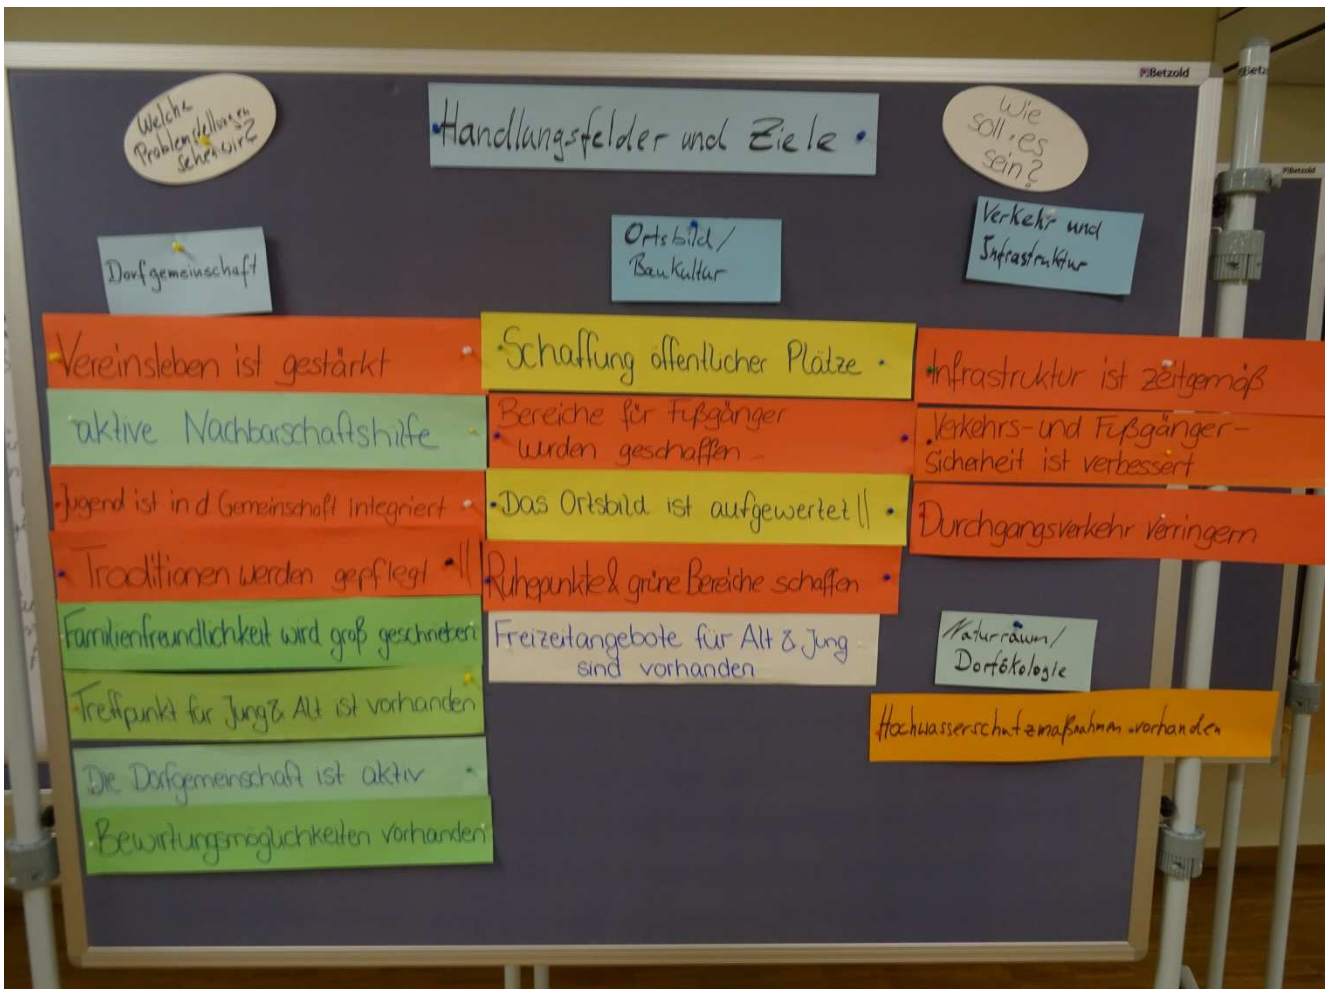 Betzold
Welche
Problemstellungen
sehen wir?
Handlungsfelder und Ziele
Wie
soll es
sein?
Dorfgemeinschaft
Vereinsleben ist gestärkt
aktive Nachbarschaftshilfe
Jugend ist in d. Gemeinschaft integriert
Traditionen werden gepflegt ||
Familienfreundlichkeit wird groß geschrieben
Treffpunkt für Jung & Alt ist vorhanden
Die Dorfgemeinschaft ist aktiv
Bewirtungsmöglichkeiten vorhanden
Ortsbild/
Baukultur
Schaffung öffentlicher Plätze
Bereiche für Fußgänger
wurden geschaffen
Das Ortsbild ist aufgewertet ||
Ruhepunkte & grüne Bereiche schaffen
Freizeitangebote für Alt & Jung
sind vorhanden
Verkehr und
Infrastruktur
Infrastruktur ist zeitgemäß
Verkehrs- und Fußgänger-
sicherheit ist verbessert
Durchgangsverkehr verringern
Naturraum/
Dorfökologie
Hochwasserschutzmaßnahmen vorhanden
Betzold